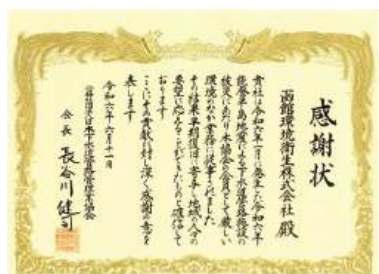 感謝状
函館環境衛生株式会社 殿
貴社は令和六年一月に発生した令和六年
能登半島地震による下水道管路施設の
被災にあたり本協会の会員として厳しい
環境のなか業務に従事されました
その結果早期復旧に寄与し地域の人々の
要望に応えることができたものと確信して
おります
ここにその貢献に対し深く感謝の意を
表します
令和六年六月十一日
公益社団法人日本下水道管路管理業協会
会長 長谷川健司